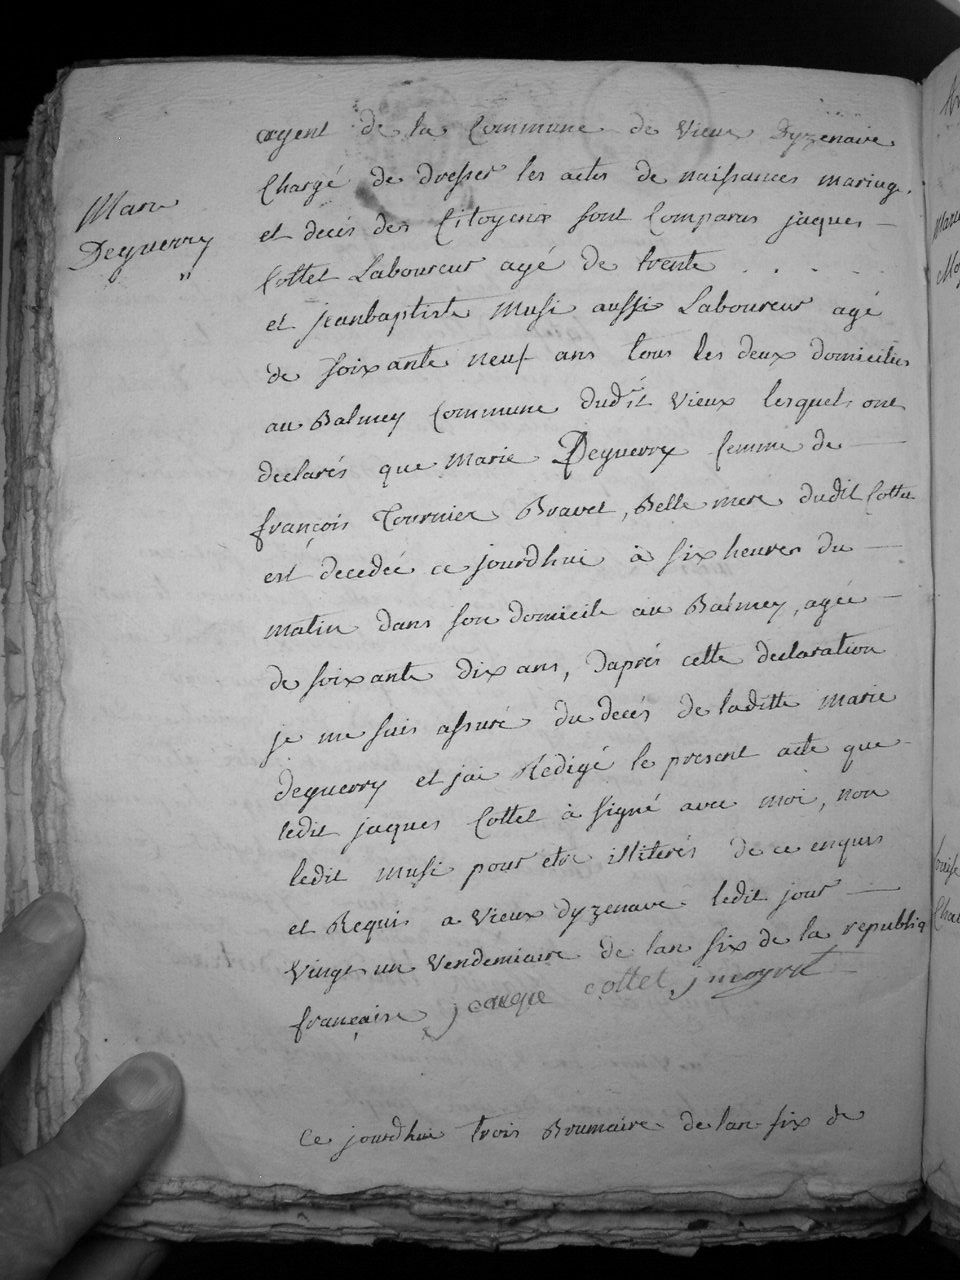 agent de la Commune de Vieux Dyzenave
Chargé de dresser les actes de naissances mariage
et decès des Citoyens sont Comparus jaques
Cottet Laboureur agé de trente
et jeanbaptiste Musi aussi Laboureur agé
de soixante neuf ans tous les deux domiciliés
au Balmey Commune dudit Vieux lesquels ont
declarés que Marie Deguerry femme de
françois Tournier Bravet, Belle mere dudit Cottet
est decedée ce jourdhui à six heures du
matin dans son domicile au Balmey, agée
de soixante dix ans, daprés cette declaration
je me suis assuré du decés de laditte marie
deguerry et jai Redigé le present acte que
ledit jaques Cottet à signé avec moi, non
ledit Musi pour etre illiterés de ce enquis
et Requis a Vieux dyzenave ledit jour
Vingt un Vendemiaire de lan six de la republiq
françaire jacque cottet
Ce jourdhui trois Brumaire de lan six de
Marie
Deguerry